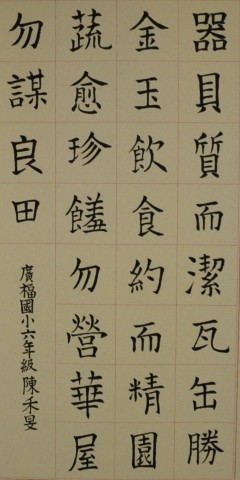 器具質而潔瓦缶勝
金玉飲食約而精園
蔬愈珍饈勿營華屋
勿謀良田
廣福國小六年級 陳禾旻